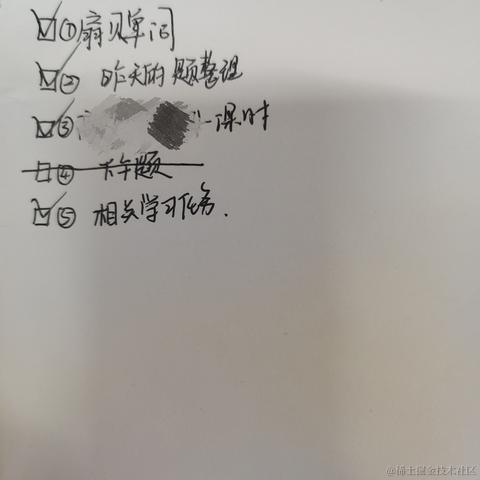 ☑①扇贝单词
☑② 昨天的题整理
☑③ 一课时
□④ 下午题
☑⑤ 相关学习任务.
@稀土掘金技术社区